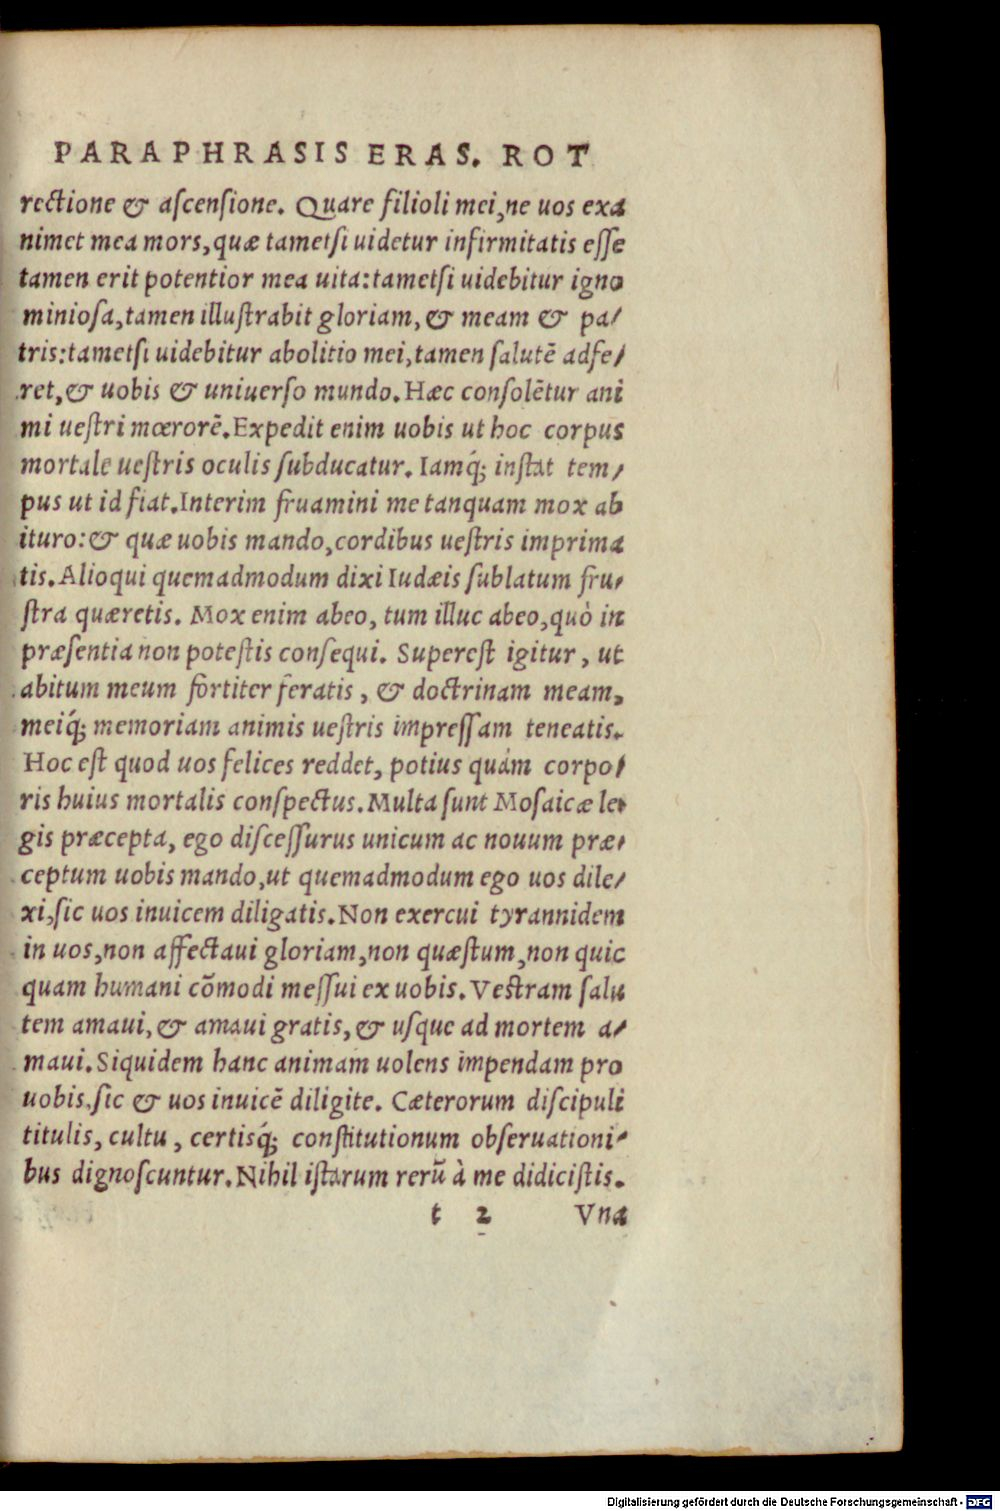 PARAPHRASIS ERAS. ROT
rectione & ascensione. Quare filioli mei, ne uos exa
nimet mea mors, quæ tametsi uidetur infirmitatis esse
tamen erit potentior mea uita: tametsi uidebitur igno
miniosa, tamen illustrabit gloriam, & meam & pa/
tris: tametsi uidebitur abolitio mei, tamen salutẽ adfe/
ret, & uobis & uniuerso mundo. Hæc consolẽtur ani
mi uestri mœrorẽ. Expedit enim uobis ut hoc corpus
mortale uestris oculis subducatur. Iamq́; instat tem/
pus ut id fiat. Interim fruamini me tanquam mox ab
ituro: & quæ uobis mando, cordibus uestris imprima
tis. Alioqui quemadmodum dixi Iudæis sublatum fru/
stra quæretis. Mox enim abeo, tum illuc abeo, quò in
præsentia non potestis consequi. Superest igitur, ut
abitum meum fortiter feratis, & doctrinam meam,
meiq́; memoriam animis uestris impressam teneatis.
Hoc est quod uos felices reddet, potius quám corpo/
ris huius mortalis conspectus. Multa sunt Mosaicæ le/
gis præcepta, ego discessurus unicum ac nouum præ/
ceptum uobis mando, ut quemadmodum ego uos dile/
xi, sic uos inuicem diligatis. Non exercui tyrannidem
in uos, non affectaui gloriam, non quæstum, non quic
quam humani cõmodi messui ex uobis. Vestram salu
tem amaui, & amaui gratis, & usque ad mortem a/
maui. Siquidem hanc animam uolens impendam pro
uobis, sic & uos inuicẽ diligite. Cæterorum discipuli
titulis, cultu, certisq́; constitutionum obseruationi/
bus dignoscuntur. Nihil istarum rerũ à me didicistis.
t 2 Vna
Digitalisierung gefördert durch die Deutsche Forschungsgemeinschaft - DFG